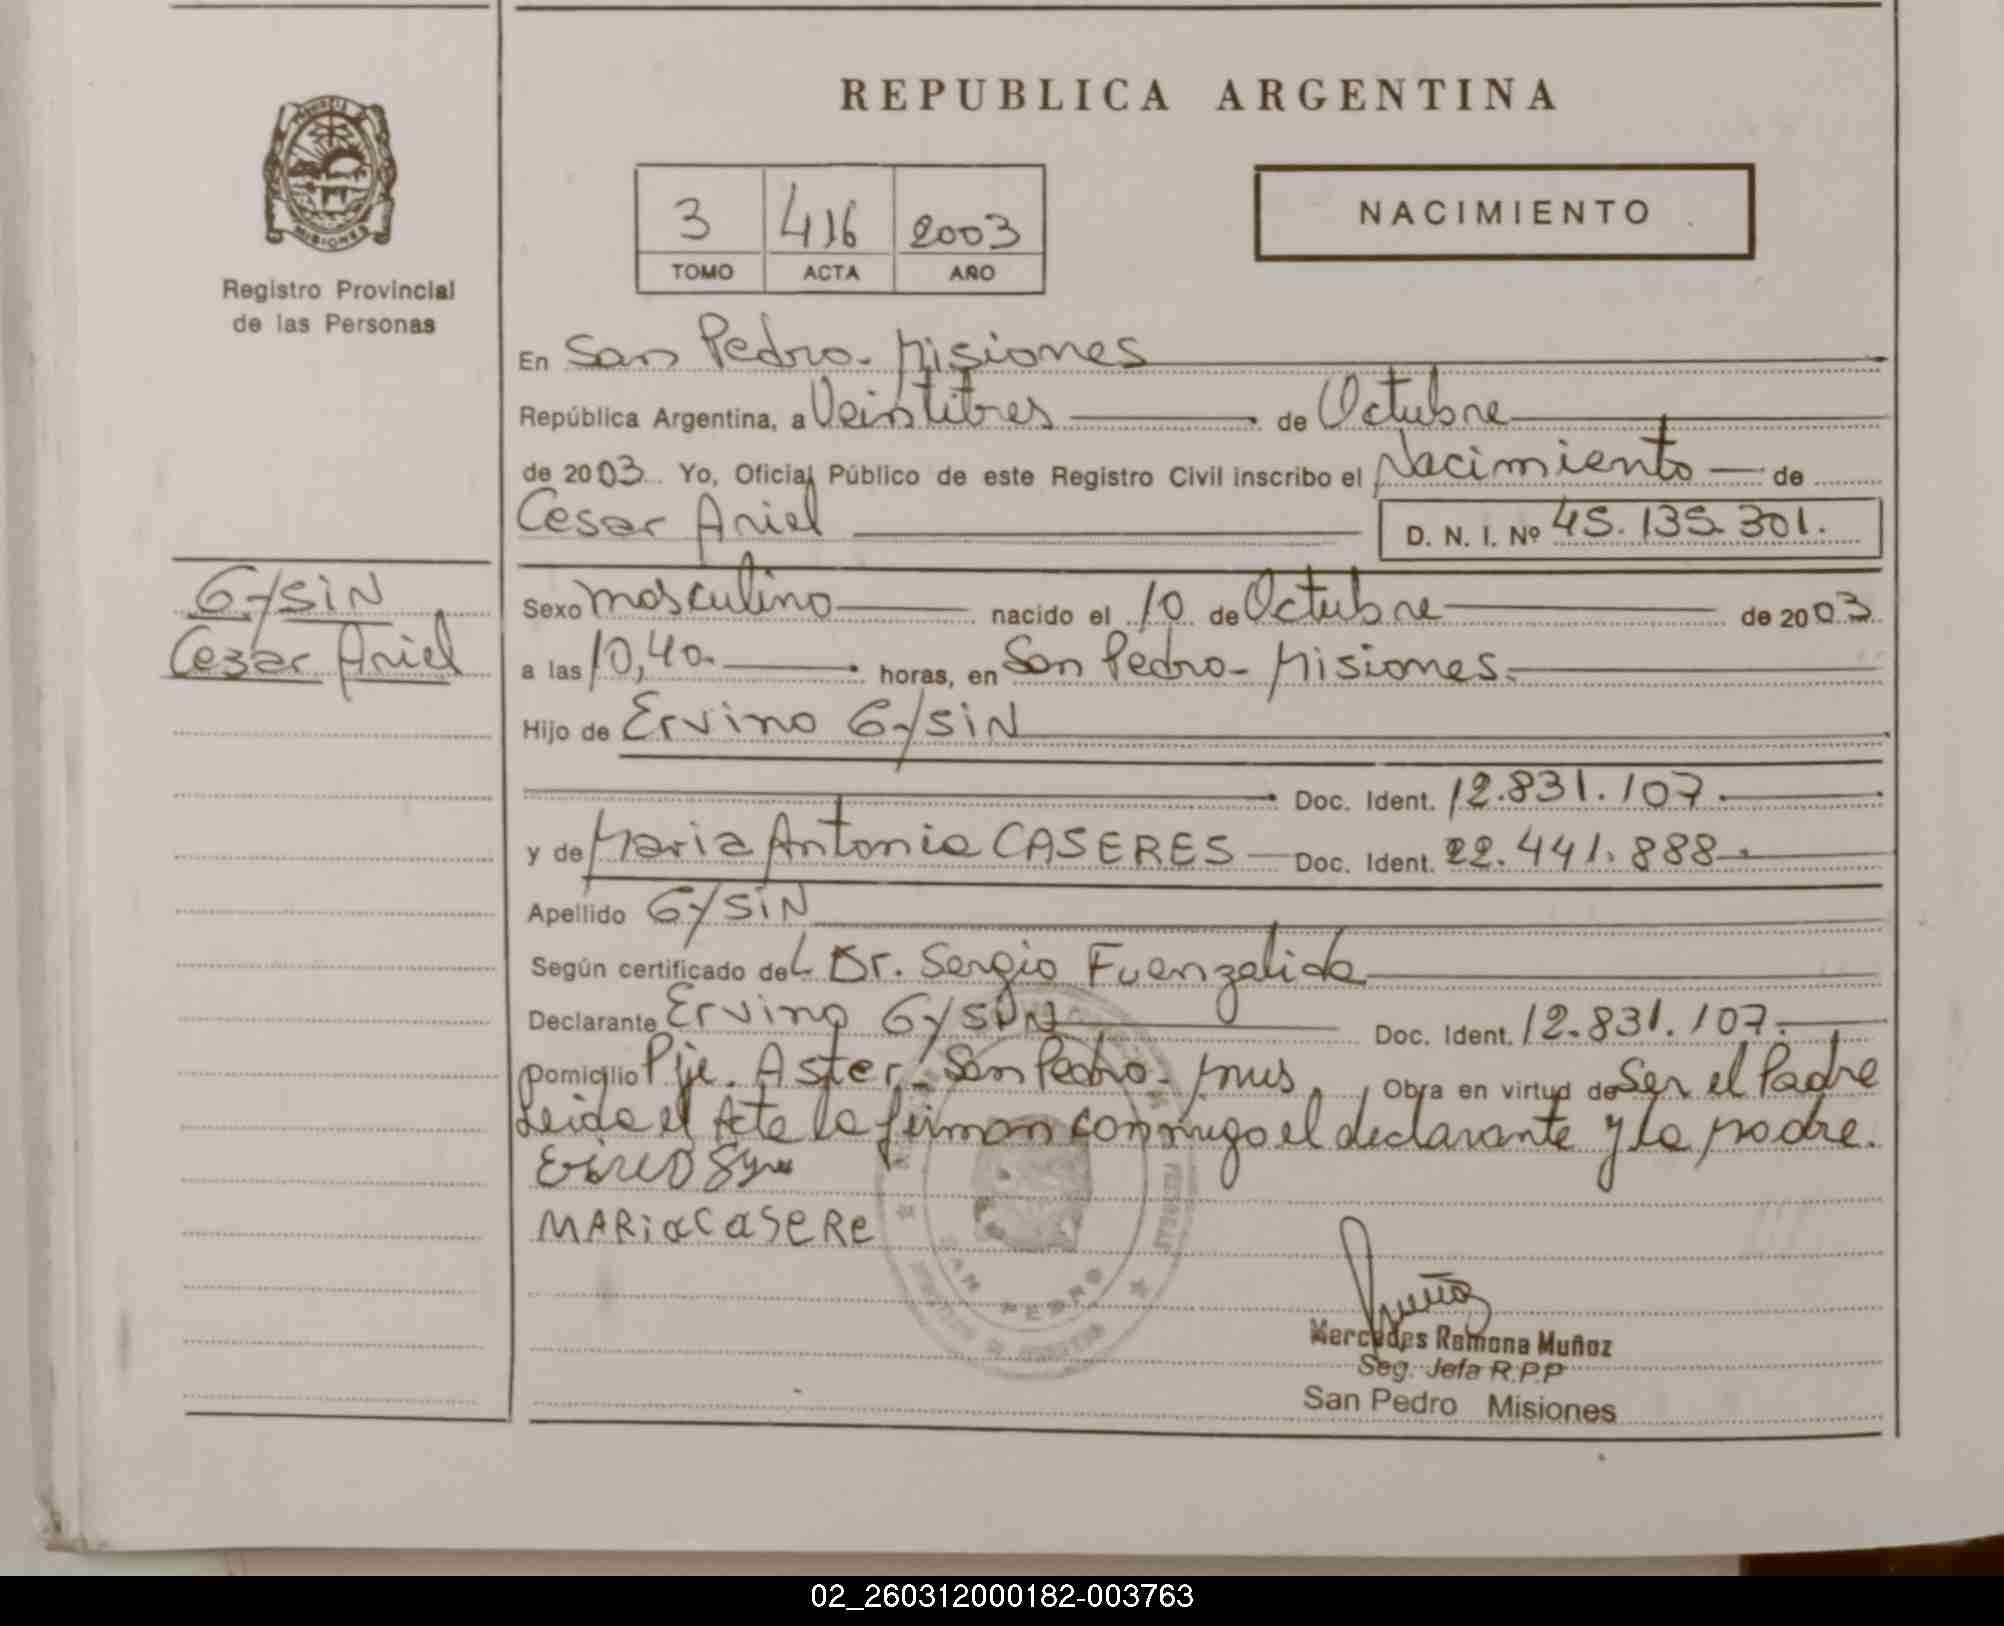 REPUBLICA ARGENTINA
MISIONES
Registro Provincial
de las Personas
3 416 2003
TOMO ACTA AÑO
NACIMIENTO
En San Pedro - Misiones
República Argentina, a Veintitres de Octubre
de 2003 Yo, Oficial Público de este Registro Civil inscribo el Nacimiento de
Cesar Ariel D. N. I. Nº 45.135.301.
GYSIN
Cesar Ariel
Sexo masculino nacido el 10 de Octubre de 2003
a las 10,40. horas, en San Pedro - Misiones.
Hijo de Ervino GYSIN
Doc. Ident. 12.831.107.
y de Maria Antonia CASERES Doc. Ident. 22.441.888
Apellido GYSIN
Según certificado del Dr. Sergio Fuenzalida
Declarante Ervino GYSIN Doc. Ident. 12.831.107.
Domicilio Pje. Aster - San Pedro - Mnes, Obra en virtud de Ser el Padre
Leida el Acta la firman conmigo el declarante y la madre.
MARia CaSERe
SAN PEDRO
Mercedes Ramona Muñoz
Seg. Jefa R.P.P
San Pedro Misiones
02_260312000182-003763